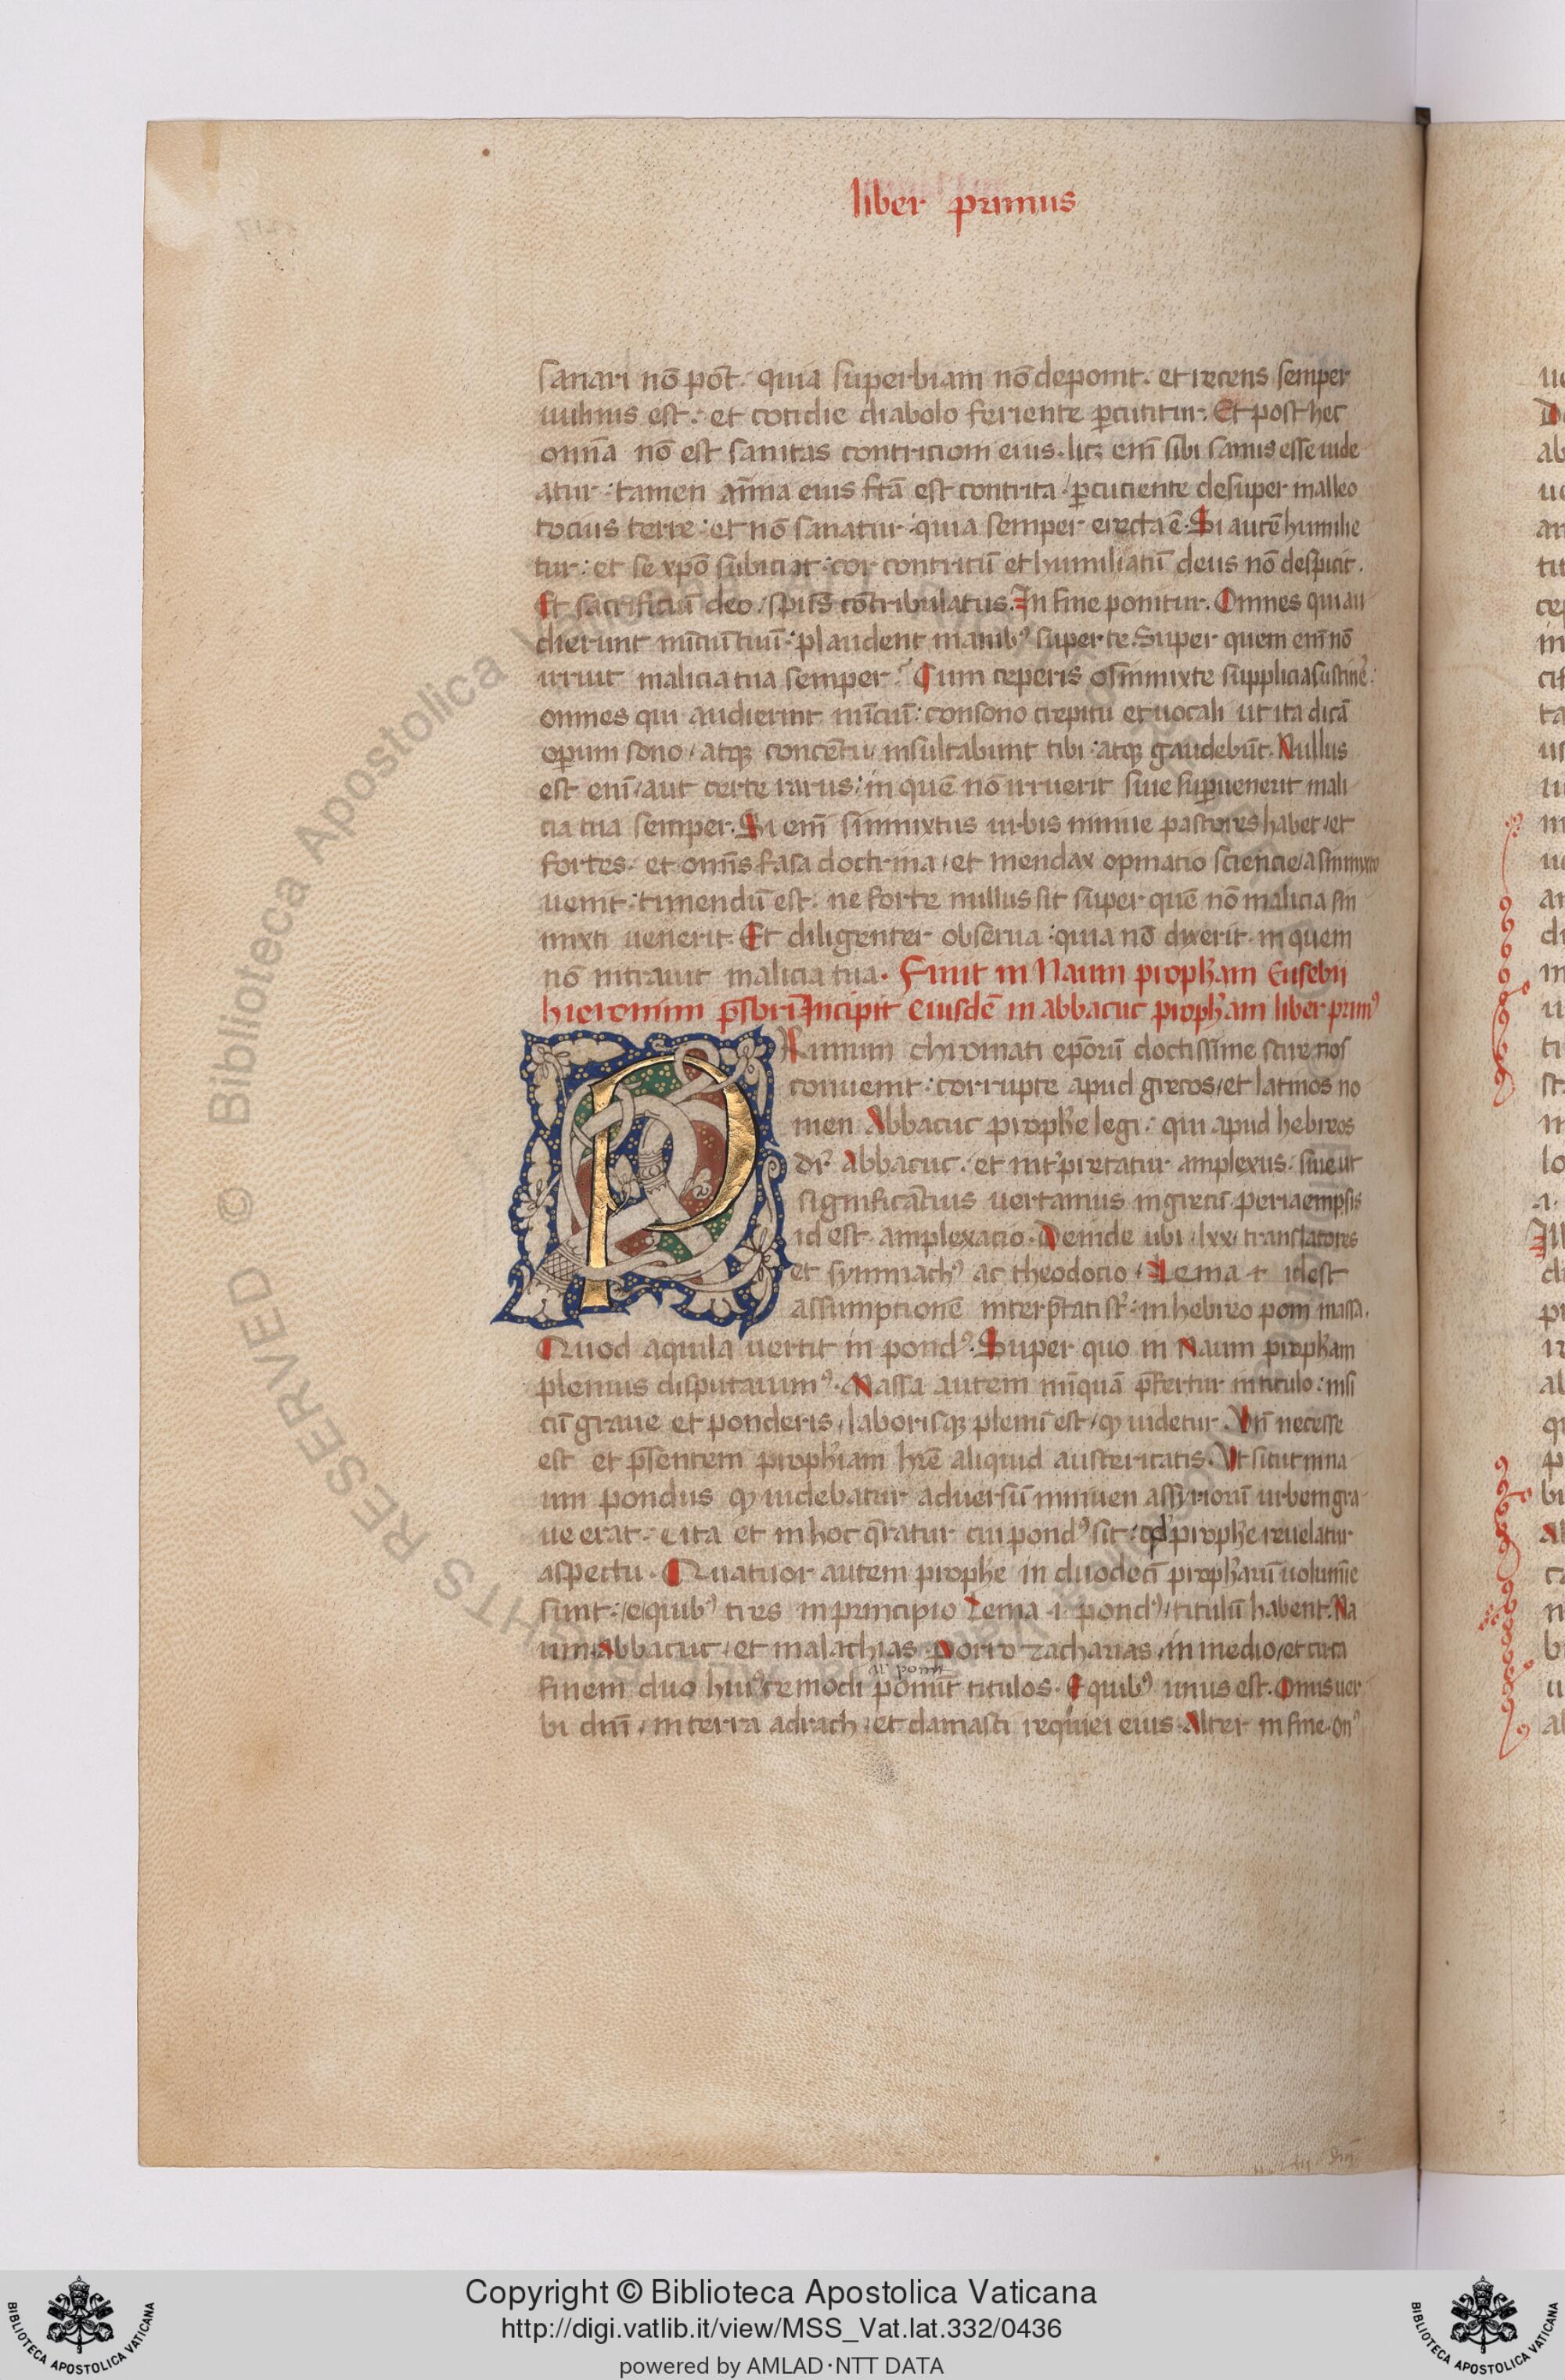 liber primus
sanari nō pōt. quia superbiam nō deponit. et recens semper
uulnus est. et cotidie diabolo feriente ꝑcutitur. Et post hec
omnia nō est sanitas contricioni eius. licꝫ enī sibi sanus esse uide
atur: tamen anima eius ftā est contrita / ꝑcuciente desuper malleo
tocius terre: et nō sanatur: quia semper erecta ē. Si autē humilie
tur: et se xpō subiciat: cor contritū et humiliatū deus nō despicit.
Et sacrificiū deo / spūs cōtribulatus. In fine ponitur. Omnes qui au
dierunt nūciū tuū: plaudent manibꝰ super te. Super quem enī nō
irruit malicia tua semper? Cum ceperis o simmixte supplicia sustinē:
omnes qui audierint nūciū: consono crepitu et uocali ut ita dicā
oꝑum sono / atqꝫ concētu / insultabunt tibi: atqꝫ gaudebūt. Nullus
est enī / aut certe rarus: in quē nō irruerit siue suꝑuenerit mali
cia tua semper. Si enī simmixtus urbis niniue pastores habet / et
fortes. et omīs falsa doctrina / et mendax opinatio sciencie / a simmixto
uenit: timendū est. ne forte nullus sit super quē nō malicia sim
mixti uenerit. Et diligenter obserua: quia nō dixerit. in quem
nō intrauit malicia tua. Finit in Naum propham Eusebii
hieronimi p̄sbri Incipit eiusdē in abbacuc propham liber primꝰ
PRimum chromati epōrū doctissime scire nos
conuenit: corrupte apud grecos / et latinos no
men Abbacuc prophe legi: qui apud hebreos
dr̄ abbacuc. et int̄pretatur amplexus. siue ut
significātius uertamus in grecū periaempsis
id est amplexacio. Deinde ubi .lxx. translatores
et symmachꝰ ac theodocio. Lema + id est
assumptionē interp̄tati st̄: in hebreo poni massa.
Quod aquila uertit in pondꝰ. Super quo in Naum propham
plenius disputauimꝰ. Massa autem nūquā p̄fertur in titulo: nisi
cū graue et ponderis, laborisqꝫ plenū est / qđ uidetur. Vn̄ necesse
est et p̄sentem prophiam hr̄e aliquid austeritatis. Vt sicut in na
um pondus qđ uidebatur aduersū niniuen assyriorū urbem gra
ue erat. ita et in hoc q̄ratur cui pondꝰ sit: qđ prophe reuelatur
aspectu. Quatuor autem prophe in duodecī prophaꝝ uolumīe
sunt: e quibꝰ tres in principio Lema .i. pondꝰ / titulū habent. Na
um. Abbacuc / et malachias. Porro zacharias / in medio / et circa
al' ponit
finem duo huiꝰcemodi ponūt titulos. E quibꝰ unus est. Onus uer
bi dn̄i / in terra adrach / et damasci requiei eius. Alter in fine. Onꝰ
Copyright © Biblioteca Apostolica Vaticana
http://digi.vatlib.it/view/MSS_Vat.lat.332/0436
powered by AMLAD·NTT DATA